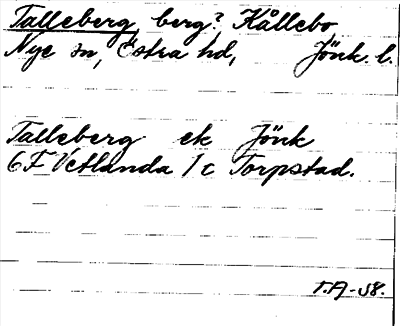 Talleberg, berg? Kållebo
Nye sn, Östra hd, Jönk. l.
Talleberg ek Jönk
6F Vetlanda 1 c Torpstad.
T.A-58.